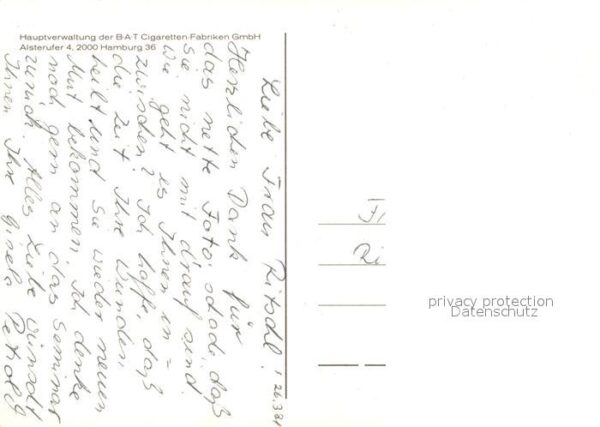 Hauptverwaltung der B·A·T Cigaretten-Fabriken GmbH
Alsterufer 4, 2000 Hamburg 36
26.3.81
Liebe Frau !
Herzlichen Dank für
das nette Foto, schade, daß
Sie nicht mit drauf sind.
Wie geht es Ihnen in=
zwischen? Ich hoffe, daß
die Zeit Ihre Wunden
heilt und Sie wieder neuen
Mut bekommen. Ich denke
noch gern an das Seminar
zurück. Alles Liebe wünscht
Ihnen Ihre Gisela
Ri
privacy protection
Datenschutz